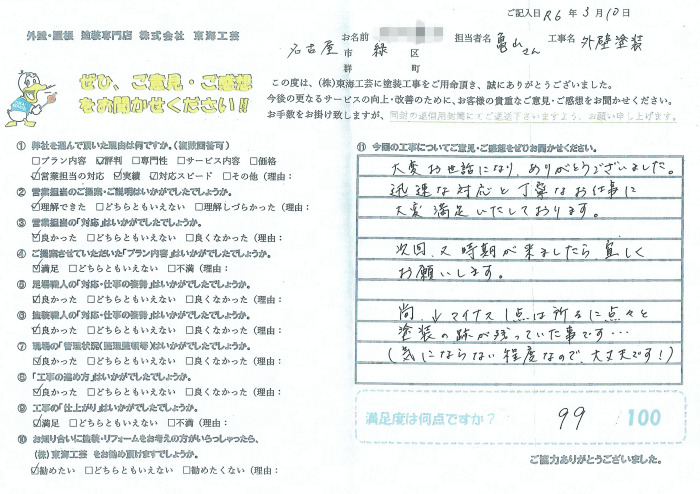 ご記入日 R6 年 3 月 10 日
外壁・屋根 塗装専門店 株式会社 東海工芸
お名前 担当者名 亀山さん 工事名 外壁塗装
名古屋 市 緑 区
郡 町
ぜひ、ご意見・ご感想
をお聞かせください!!
この度は、(株)東海工芸に塗装工事をご用命頂き、誠にありがとうございました。
今後の更なるサービスの向上・改善のために、お客様の貴重なご意見・ご感想をお聞かせください。
お手数をお掛け致しますが、同封の返信用封筒にてご返送下さいますよう、お願い申し上げます。
① 弊社を選んで頂いた理由は何ですか。(複数回答可)
□プラン内容 ☑評判 □専門性 □サービス内容 □価格
☑営業担当の対応 ☑実績 ☑対応スピード □その他(理由:
② 営業担当のご提案・ご説明はいかがでしたでしょうか。
☑理解できた □どちらともいえない □理解しづらかった(理由:
③ 営業担当の「対応」はいかがでしたでしょうか。
☑良かった □どちらともいえない □良くなかった(理由:
④ ご提案させていただいた「プラン内容」はいかがでしたでしょうか。
☑満足 □どちらともいえない □不満(理由:
⑤ 足場職人の「対応・仕事の姿勢」はいかがでしたでしょうか。
☑良かった □どちらともいえない □良くなかった(理由:
⑥ 塗装職人の「対応・仕事の姿勢」はいかがでしたでしょうか。
☑良かった □どちらともいえない □良くなかった(理由:
⑦ 現場の「管理状況(整理整頓等)はいかがでしたでしょうか。
☑良かった □どちらともいえない □良くなかった(理由:
⑧ 「工事の進め方」はいかがでしたでしょうか。
☑良かった □どちらともいえない □良くなかった(理由:
⑨ 工事の「仕上がり」はいかがでしたでしょうか。
☑満足 □どちらともいえない □不満(理由:
⑩ お知り合いに塗装・リフォームをお考えの方がいらっしゃったら、
(株)東海工芸 をお勧め頂けますでしょうか。
☑勧めたい □どちらともいえない □勧めたくない(理由:
⑪ 今回の工事についてご意見・ご感想をぜひお聞かせください。
大変お世話になり、ありがとうございました。
迅速な対応と丁寧なお仕事に
大変満足いたしております。
次回、又時期が来ましたら宜しく
お願いします。
尚、↓マイナス1点は所々に点々と
塗装の跡が残っていた事です…
(気にならない程度なので、大丈夫です!)
満足度は何点ですか? 99 /100
ご協力ありがとうございました。